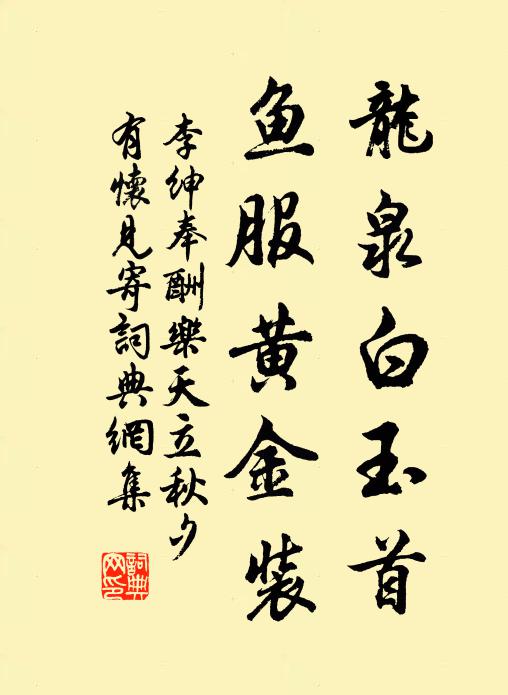 龍泉白玉首
鱼服黄金装
李紳奉酬樂天立秋夕
有懷見寄詞典網集
詞典
网印